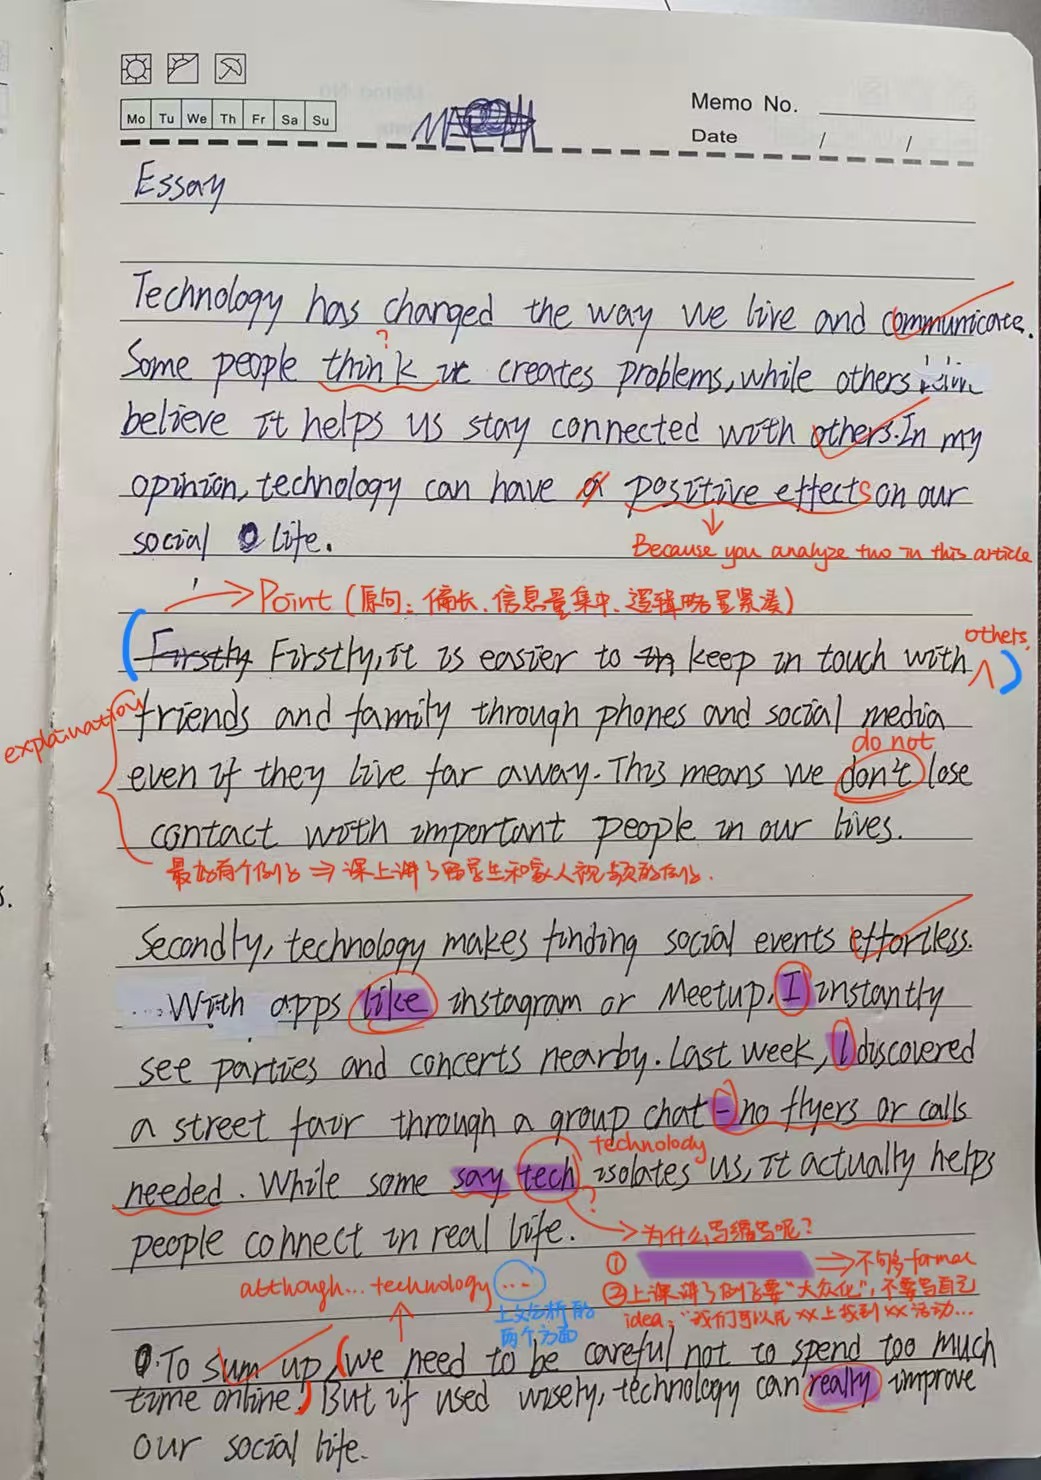 Memo No.
Mo Tu We Th Fr Sa Su
Date / /
Essay
Technology has changed the way we live and communicate.
?
Some people think it creates problems, while others
believe it helps us stay connected with others. In my
opinion, technology can have a positive effects on our
social life.
Because you analyze two in this article
Point (原句：偏长、信息量集中、逻辑略显紧凑)
others,
Firstly Firstly, it is easier to keep in touch with
explaination
friends and family through phones and social media
do not
even if they live far away. This means we don't lose
contact with important people in our lives.
最好有个例子 ⇒ 课上讲了留学生和家人视频的例子.
Secondly, technology makes finding social events effortless.
With apps like instagram or Meetup, I instantly
see parties and concerts nearby. Last week, I discovered
a street fair through a group chat - no flyers or calls
technolody
needed. While some say tech isolates us, it actually helps
?
people connect in real life.
为什么写缩写呢？
① ⇒ 不够formal
although... technology ...
②上课讲了例子要"大众化",不要写自己
上文分析的
两个方面
idea: "我们可以用xx上找到xx活动...
To sum up, we need to be careful not to spend too much
time online. But if used wisely, technology can really improve
our social life.